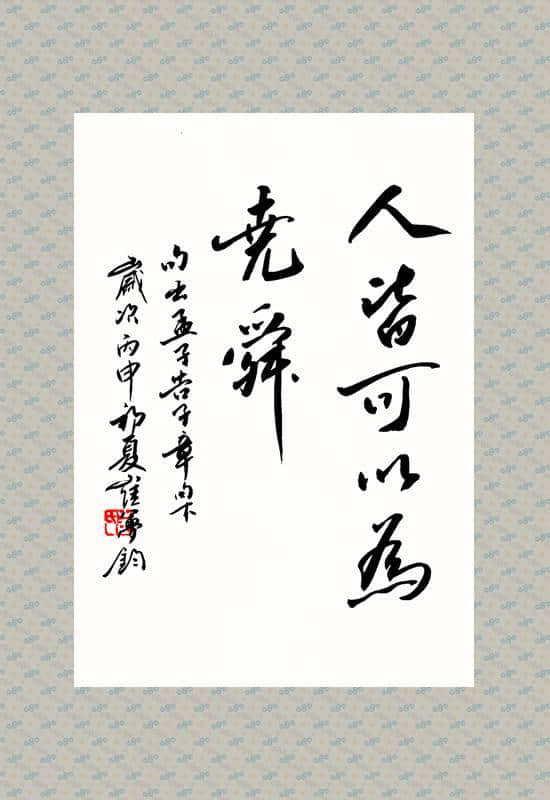 人皆可以為
堯舜
句出孟子告子章句下
歲次丙申初夏崔
鈞